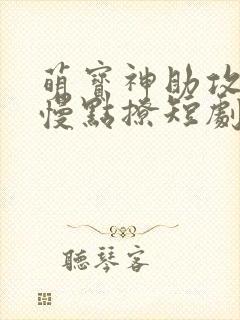 萌寶神助攻
慢點撩短劇
聽琴客